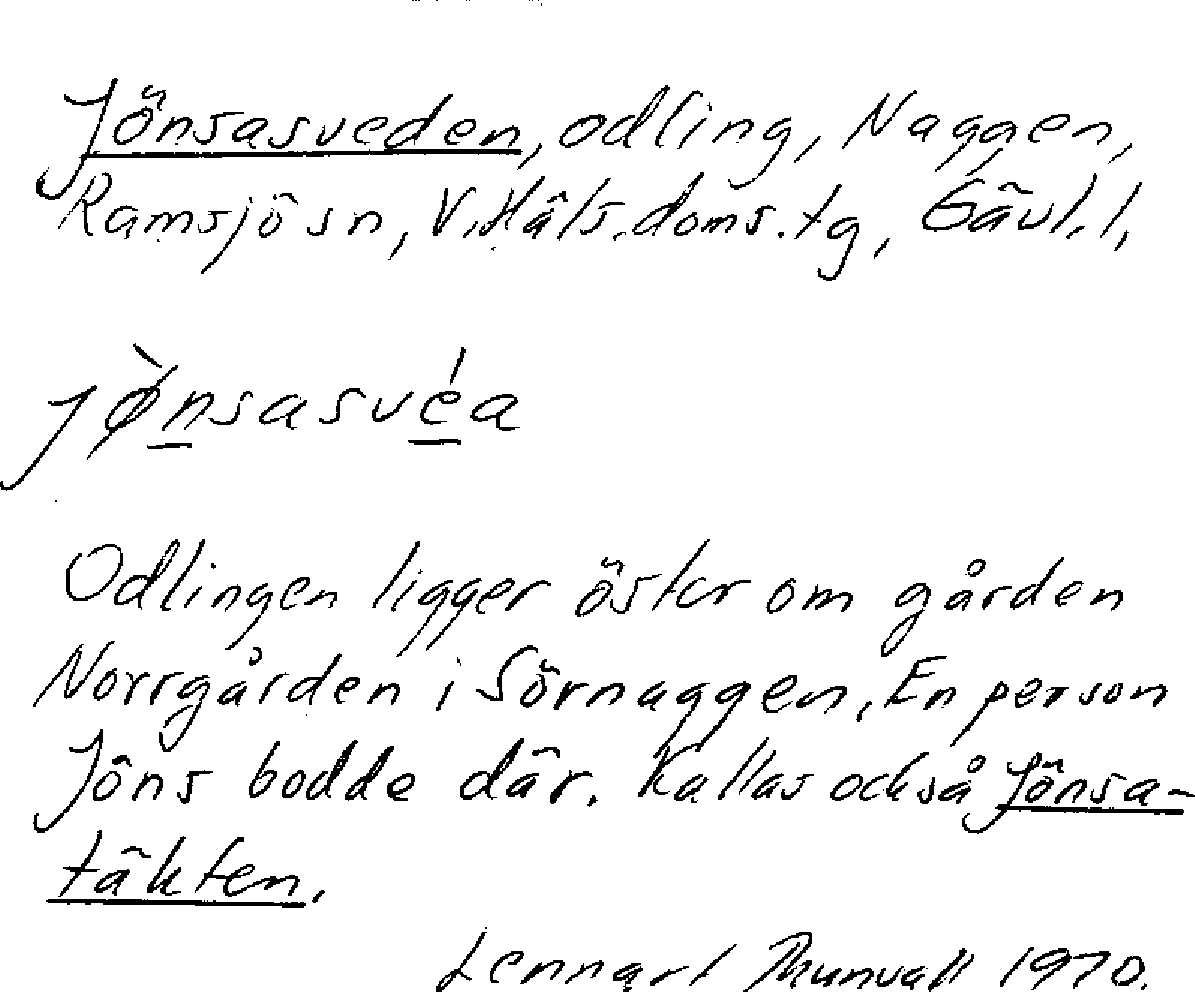 Jönsasveden, odling, Naggen,
Ramsjö sn, V. Häls. doms. tg, Gävl. l,
jø̀nsasvéa
Odlingen ligger öster om gården
Norrgården i Sörnaggen. En person
Jöns bodde där. Kallas också Jönsa-
täkten.
Lennart Thunvall 1970.